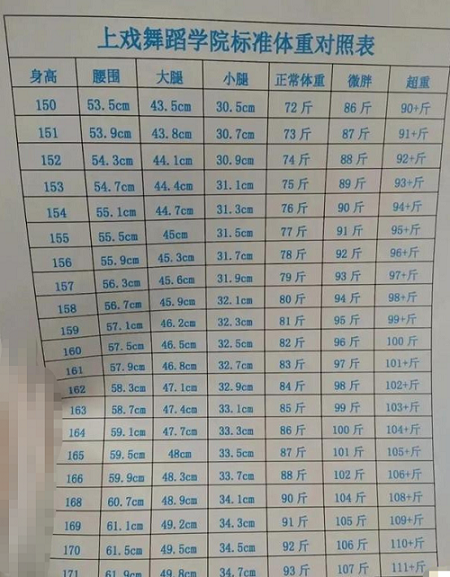 上戏舞蹈学院标准体重对照表
身高 腰围 大腿 小腿 正常体重 微胖 超重
150 53.5cm 43.5cm 30.5cm 72斤 86斤 90+斤
151 53.9cm 43.8cm 30.7cm 73斤 87斤 91+斤
152 54.3cm 44.1cm 30.9cm 74斤 88斤 92+斤
153 54.7cm 44.4cm 31.1cm 75斤 89斤 93+斤
154 55.1cm 44.7cm 31.3cm 76斤 90斤 94+斤
155 55.5cm 45cm 31.5cm 77斤 91斤 95+斤
156 55.9cm 45.3cm 31.7cm 78斤 92斤 96+斤
157 56.3cm 45.6cm 31.9cm 79斤 93斤 97+斤
158 56.7cm 45.9cm 32.1cm 80斤 94斤 98+斤
159 57.1cm 46.2cm 32.3cm 81斤 95斤 99+斤
160 57.5cm 46.5cm 32.5cm 82斤 96斤 100斤
161 57.9cm 46.8cm 32.7cm 83斤 97斤 101+斤
162 58.3cm 47.1cm 32.9cm 84斤 98斤 102+斤
163 58.7cm 47.4cm 33.1cm 85斤 99斤 103+斤
164 59.1cm 47.7cm 33.3cm 86斤 100斤 104+斤
165 59.5cm 48cm 33.5cm 87斤 101斤 105+斤
166 59.9cm 48.3cm 33.7cm 88斤 102斤 106+斤
168 60.7cm 48.9cm 34.1cm 90斤 104斤 108+斤
169 61.1cm 49.2cm 34.3cm 91斤 105斤 109+斤
170 61.5cm 49.5cm 34.5cm 92斤 106斤 110+斤
171 61.9cm 49.8cm 34.7cm 93斤 107斤 111+斤